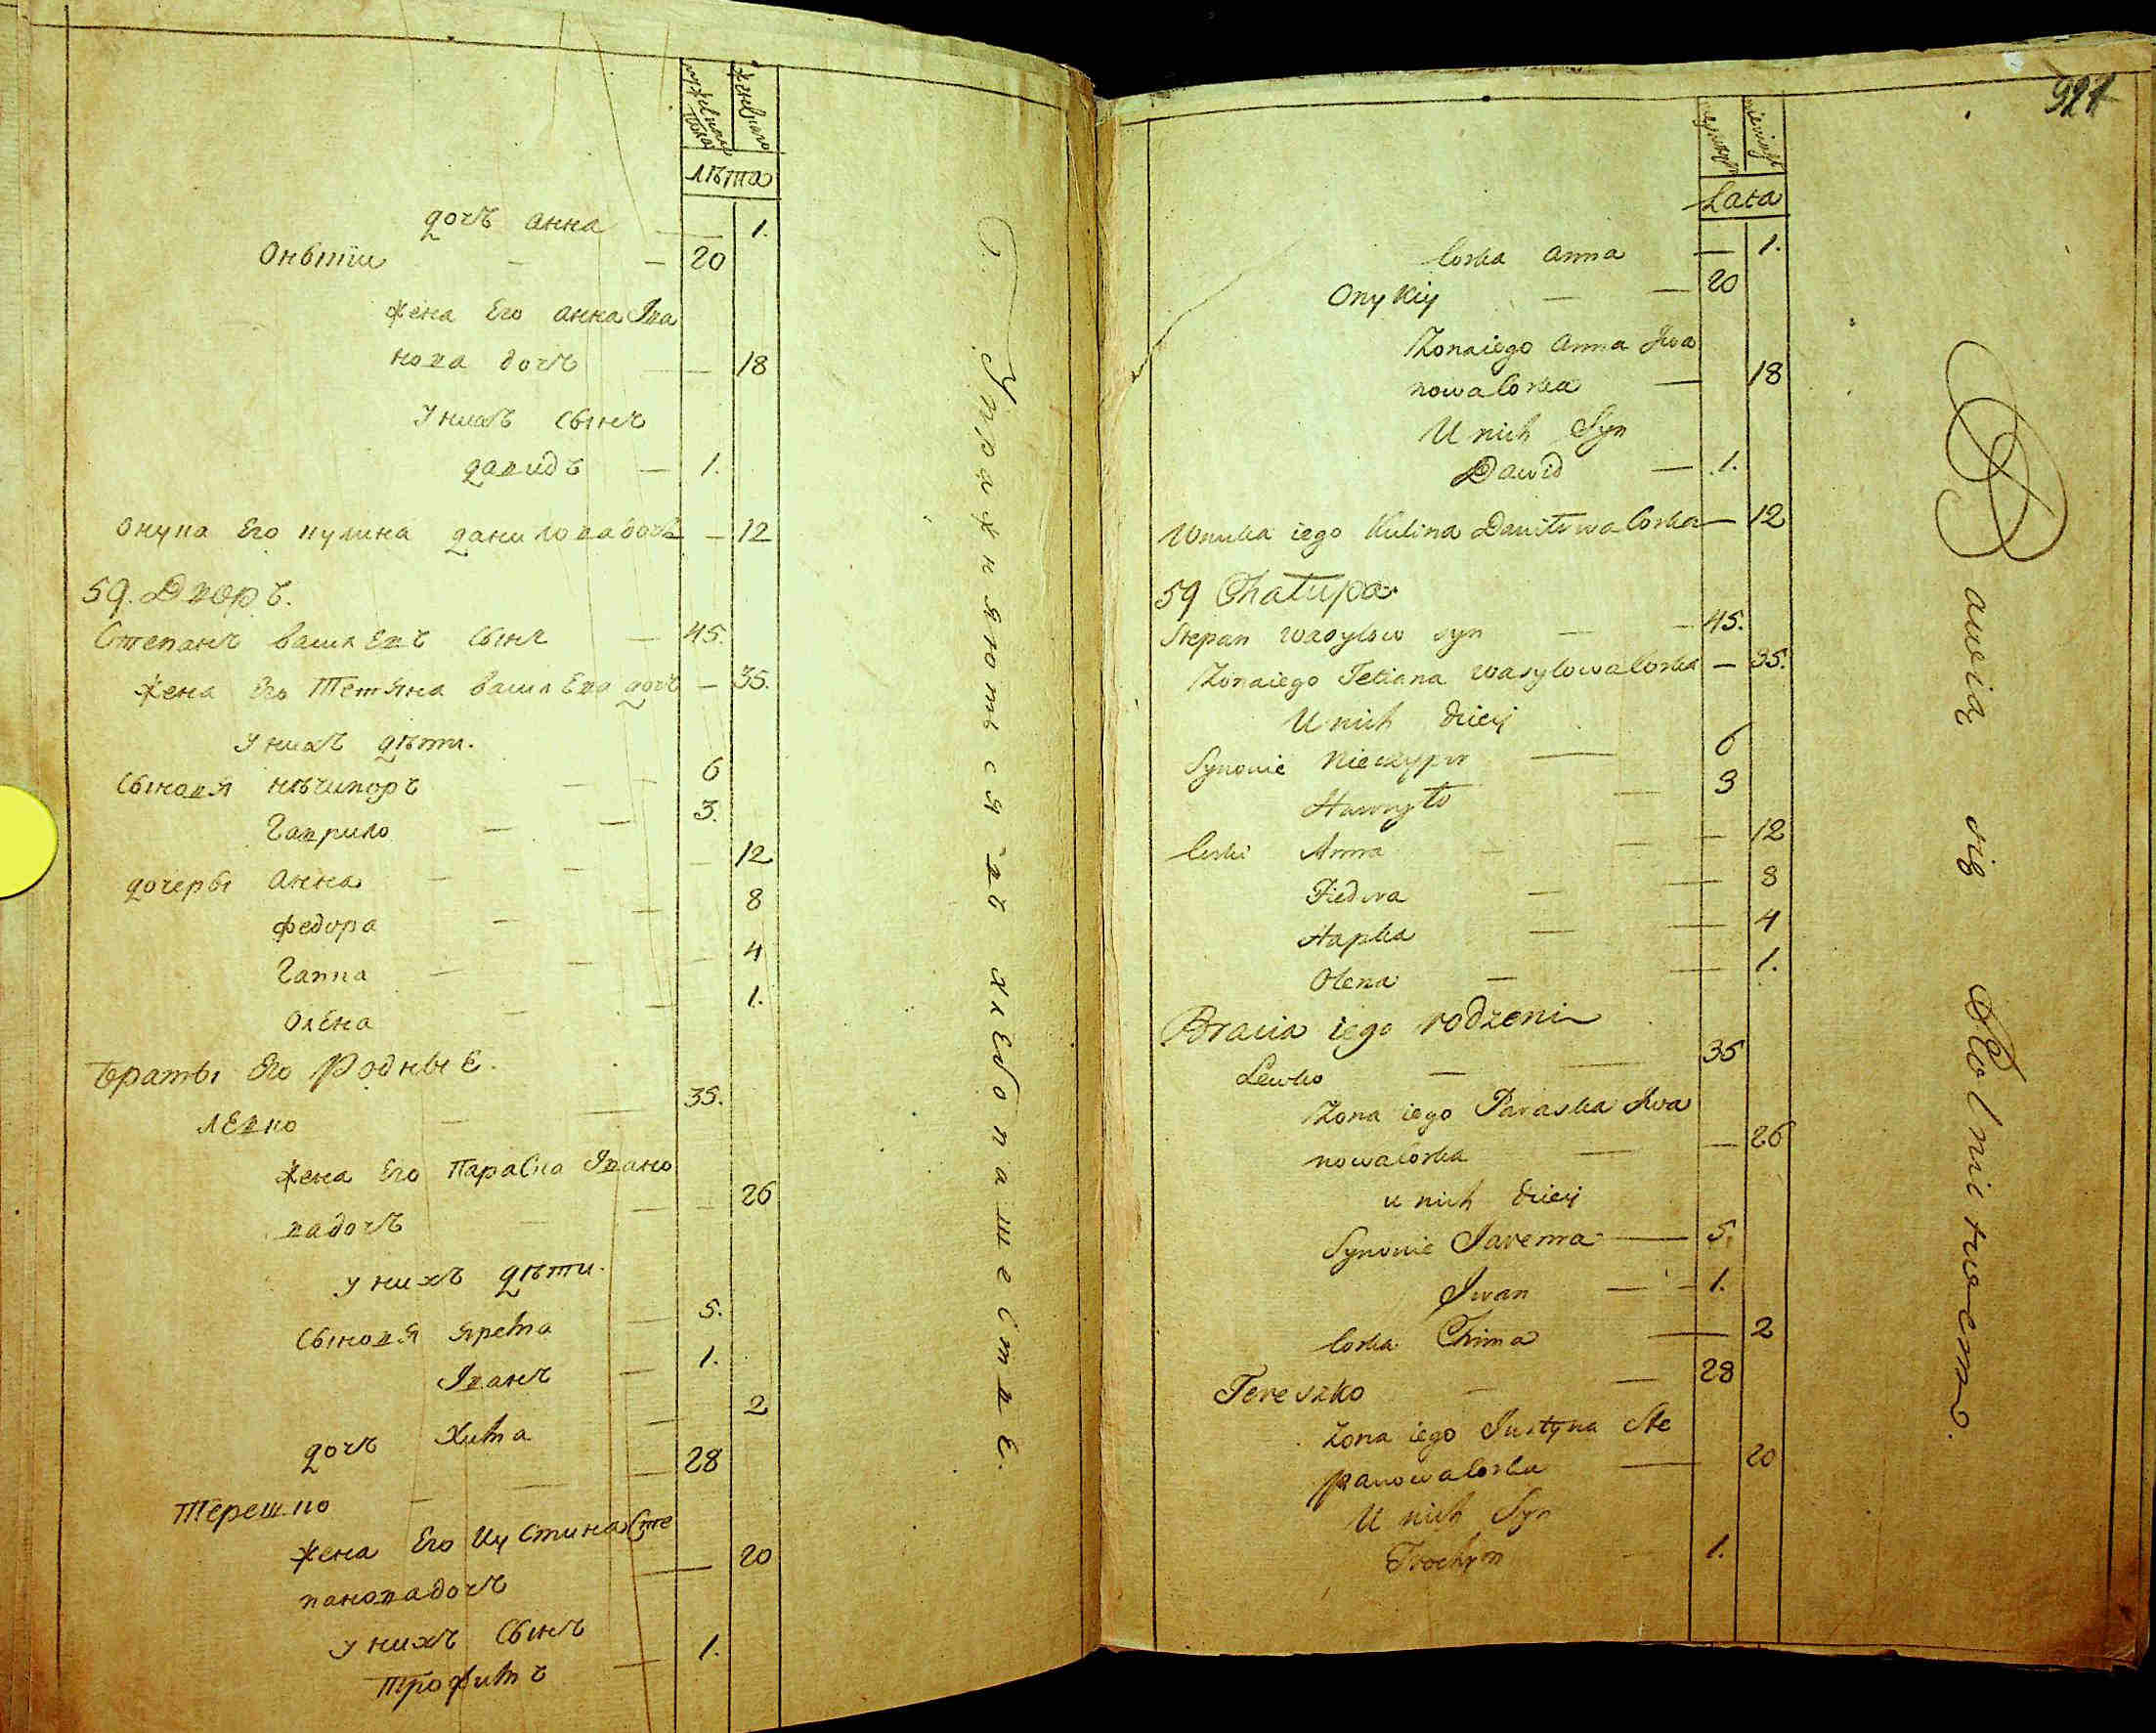 мужеска пола
женского
лѣта
дочъ анна — 1.
Онѣкій — — 20
жена Его анна Іва
нова дочъ — 18
У нихъ сынъ
давидъ — 1.
Онука Его кулина данилова дочъ — 12
59. Дворъ.
Степанъ василевъ сынъ — 45.
жена Его Тетяна василева дочъ — 35.
У нихъ дѣти.
Сыновя нѣчипоръ — 6
Гаврило — — 3.
дочеры Анна — — 12
федора — — 8
Гапка — — 4
Олена — — 1.
Браты Его Родные.
левко — — 35.
жена Его Параска Ивано
ва дочъ — — 26
У нихъ дѣти.
Сыновя ярема — 5.
Іванъ — 1.
дочъ хима — 2
Терешко — — 28
жена Его Иустина Сте
панова дочъ — 20
У нихъ Сынъ
Трофимъ — 1.
Упражняются въ хлебопашестве.
921
Lata
Corka Anna — 1.
Onykiy — — 20
Zona iego Anna Iwa
nowa Corka — 18
U nich Syn
Dawid — 1.
Wnuka iego Kulina Daniłowa Corka — 12
59 Chałupa.
Stepan Wasylow syn — — 45.
Zona iego Tetiana Wasylowa Corka — 35.
U nich dzieci
Synowie Nieczypor — 6
Hawryło — 3
Corki Anna — — 12
Fiedora — — 8
Hapka — — 4
Olena — — 1.
Bracia iego rodzeni
Lewko — — 35
Zona iego Paraska Iwa
nowa Corka — — 26
u nich dzieci
Synowie Jarema — 5.
Iwan — — 1.
Corka Chima — 2
Tereszko — — 28
Zona iego Justyna Ste
panowa Corka — 20
U nich Syn
Trochym — 1.
Bawią się Rolnictwem.